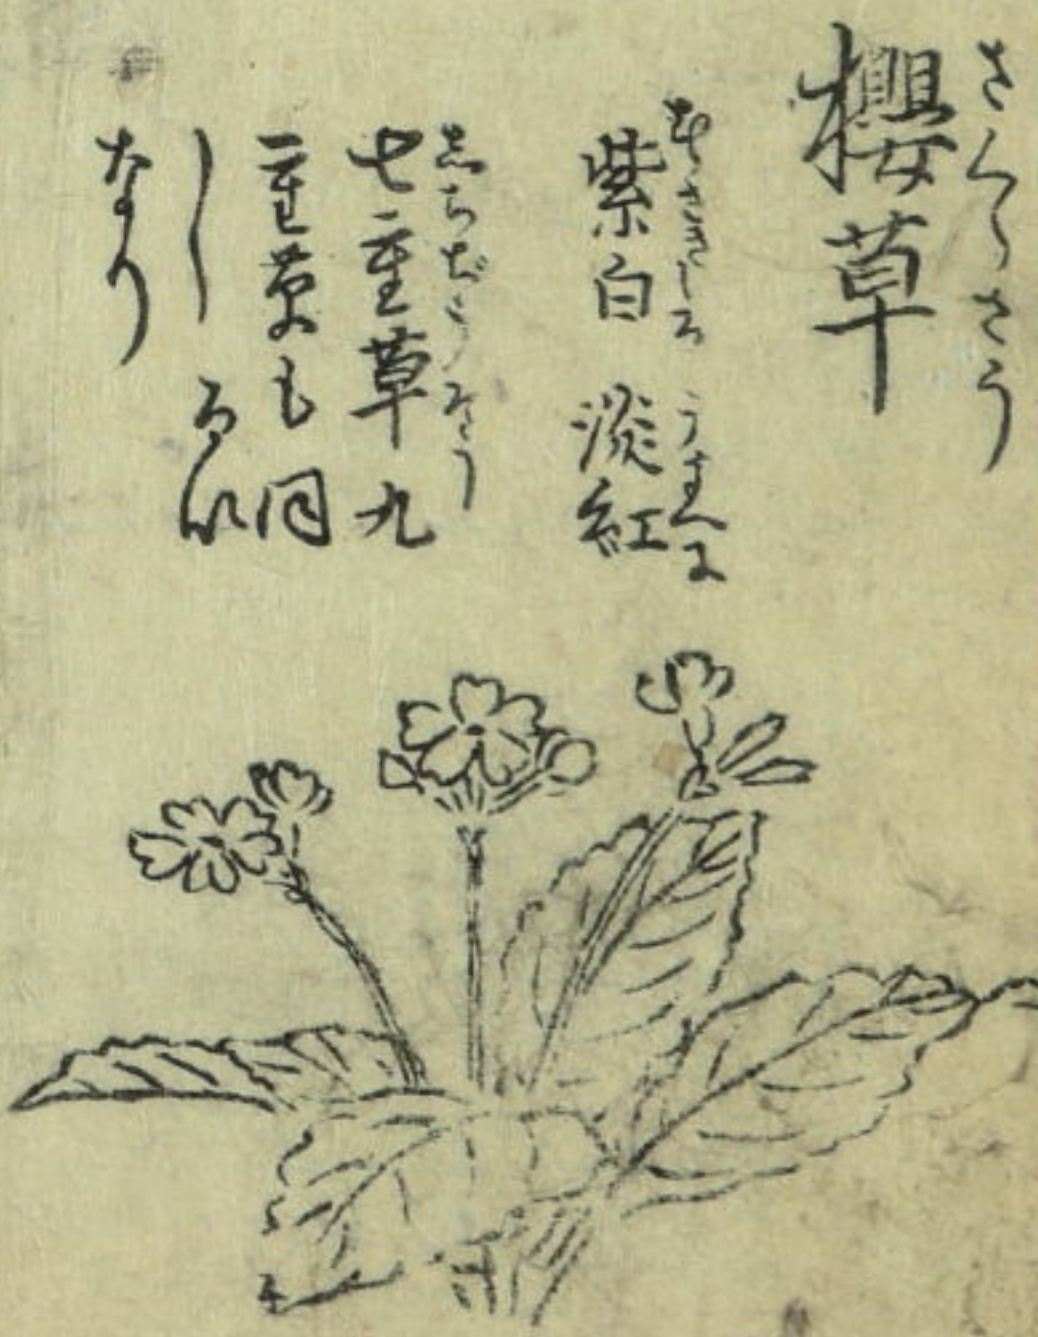 さくらさう
櫻草
むらさきしろ うすへに
紫白 淡紅
しちぢうそう
七重草九
重草も同
し るい
なり